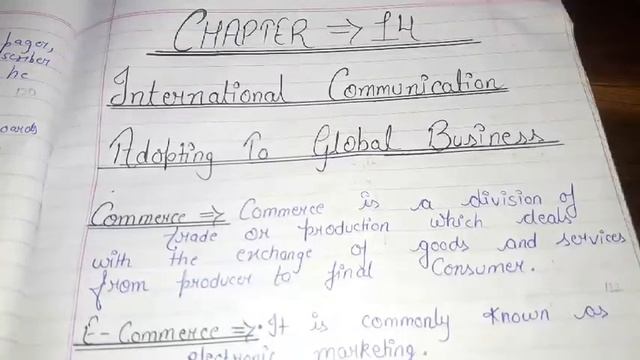 pager,
scriber
he
CHAPTER ⇒ 14
International Communication
Adopting To Global Business
Commerce ⇒ Commerce is a division of
trade or production which deals
with the exchange of goods and services
from producer to final Consumer.
E-Commerce ⇒ • It is commonly known as
electronic marketing.
oards